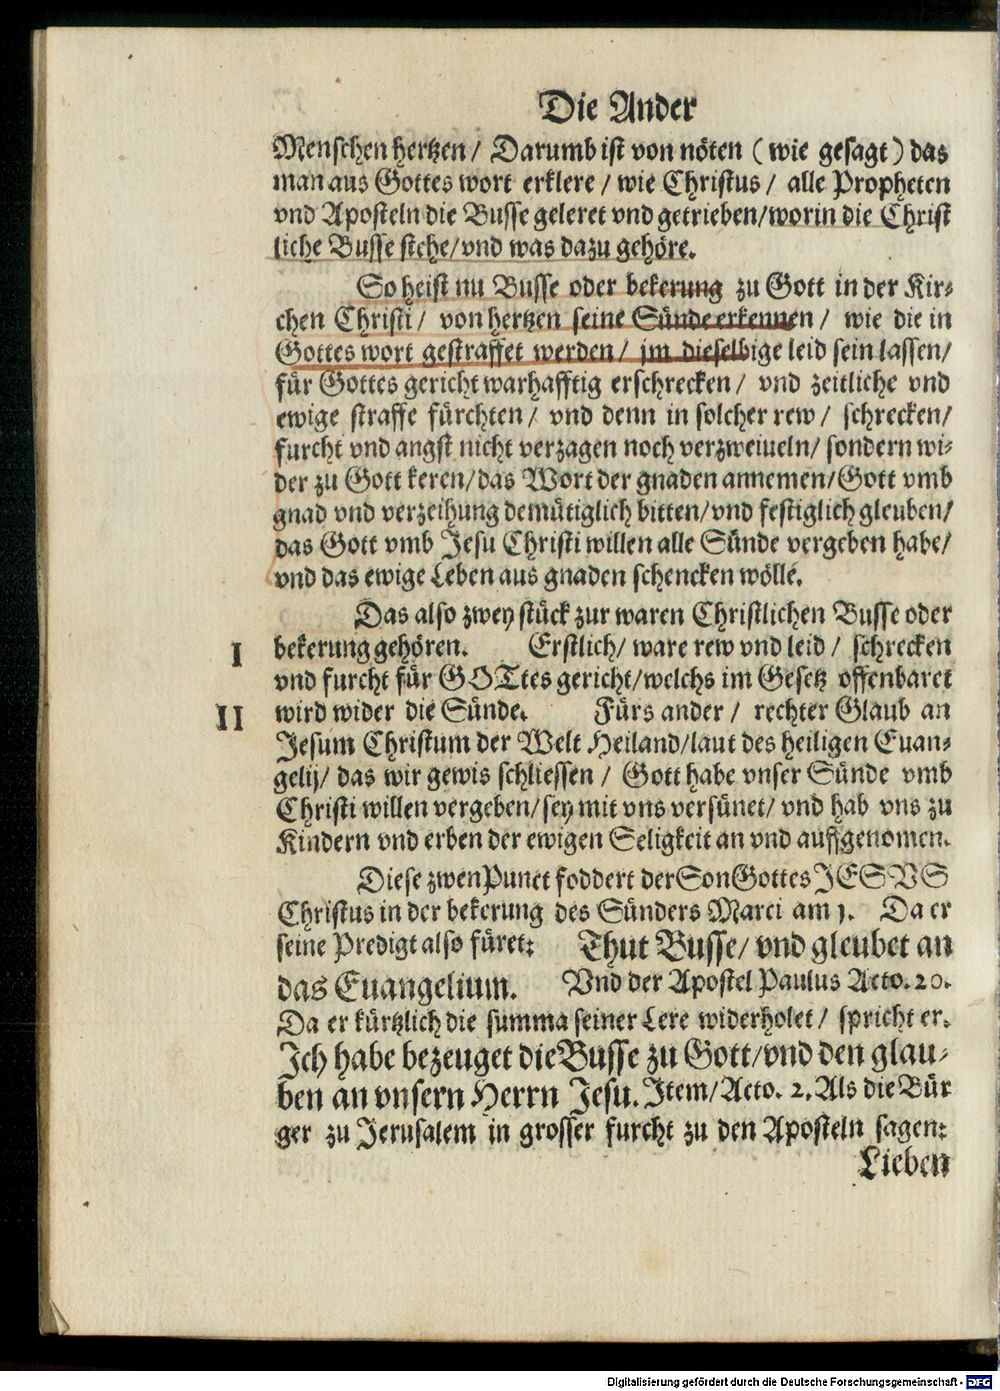 Die Ander
Menschen hertzen / Darumb ist von nöten ( wie gesagt ) das
man aus Gottes wort erklere / wie Christus / alle Propheten
vnd Aposteln die Busse geleret vnd getrieben / worin die Christ
liche Busse stehe / vnd was dazu gehöre.
So heist nu Busse oder bekerung zu Gott in der Kir⸗
chen Christi / von hertzen seine Sünde erkennen / wie die in
Gottes wort gestraffet werden / jm dieselbige leid sein lassen /
für Gottes gericht warhafftig erschrecken / vnd zeitliche vnd
ewige straffe fürchten / vnd denn in solcher rew / schrecken /
furcht vnd angst nicht verzagen noch verzweiueln / sondern wi⸗
der zu Gott keren / das Wort der gnaden annemen / Gott vmb
gnad vnd verzeihung demütiglich bitten / vnd festiglich gleuben /
das Gott vmb Jesu Christi willen alle Sünde vergeben habe /
vnd das ewige Leben aus gnaden schencken wölle.
Das also zwey stück zur waren Christlichen Busse oder
I bekerung gehören. Erstlich / ware rew vnd leid / schrecken
vnd furcht für GOTtes gericht / welchs im Gesetz offenbaret
II wird wider die Sünde. Fürs ander / rechter Glaub an
Jesum Christum der Welt Heiland / laut des heiligen Euan⸗
gelij / das wir gewis schliessen / Gott habe vnser Sünde vmb
Christi willen vergeben / sey mit vns versünet / vnd hab vns zu
Kindern vnd erben der ewigen Seligkeit an vnd auffgenomen.
Diese zwen Punct foddert der Son Gottes JESVS
Christus in der bekerung des Sünders Marci am j. Da er
seine Predigt also füret: Thut Busse / vnd gleubet an
das Euangelium. Vnd der Apostel Paulus Acto. 20.
Da er kürtzlich die summa seiner Lere widerholet / spricht er.
Ich habe bezeuget die Busse zu Gott / vnd den glau⸗
ben an vnsern Herrn Jesu. Item / Acto. 2. Als die Bür
ger zu Jerusalem in grosser furcht zu den Aposteln sagen:
Lieben
Digitalisierung gefördert durch die Deutsche Forschungsgemeinschaft - DFG